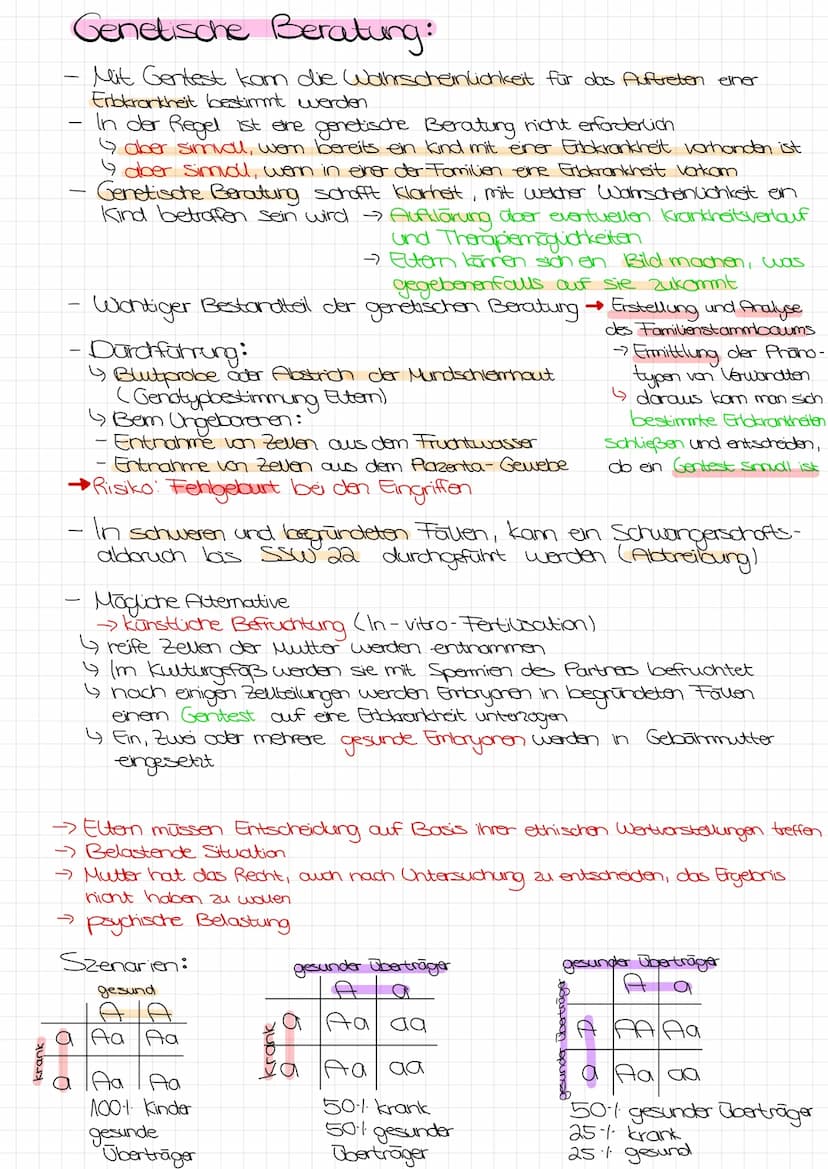 Genetische Beratung:
- Mit Gentest kann die Wahrscheinlichkeit für das Auftreten einer
Erbkrankheit bestimmt werden
- In der Regel ist eine genetische Beratung nicht erforderlich
↳ aber sinnvoll, wenn bereits ein Kind mit einer Erbkrankheit vorhanden ist
↳ aber sinnvoll, wenn in einer der Familien eine Erbkrankheit vorkam
- Genetische Beratung schafft Klarheit, mit welcher Wahrscheinlichkeit ein
Kind betroffen sein wird → Aufklärung über eventuellen Krankheitsverlauf
und Therapiemöglichkeiten
→ Eltern können sich ein Bild machen, was
gegebenenfalls auf sie zukommt
- Wichtiger Bestandteil der genetischen Beratung → Erstellung und Analyse
des Familienstammbaums
→ Ermittlung der Phäno-
typen von Verwandten
↳ daraus kann man sich
bestimmte Erbkrankheiten
schließen und entscheiden,
ob ein Gentest sinnvoll ist
- Durchführung:
↳ Blutprobe oder Abstrich der Mundschleimhaut
(Genotypbestimmung Eltern)
↳ Beim Ungeborenen:
- Entnahme von Zellen aus dem Fruchtwasser
- Entnahme von Zellen aus dem Plazenta-Gewebe
→ Risiko: Fehlgeburt bei den Eingriffen
- In schweren und begründeten Fällen, kann ein Schwangerschafts-
abbruch bis SSW 22 durchgeführt werden (Abtreibung)
- Mögliche Alternative
→ künstliche Befruchtung (In-vitro-Fertilisation)
↳ reife Zellen der Mutter werden entnommen
↳ Im Kulturgefäß werden sie mit Spermien des Partners befruchtet
↳ nach einigen Zellteilungen werden Embryonen in begründeten Fällen
einem Gentest auf eine Erbkrankheit unterzogen
↳ Ein, Zwei oder mehrere gesunde Embryonen werden in Gebärmutter
eingesetzt
→ Eltern müssen Entscheidung auf Basis ihrer ethischen Wertvorstellungen treffen
→ Belastende Situation
→ Mutter hat das Recht, auch nach Untersuchung zu entscheiden, das Ergebnis
nicht haben zu wollen
→ psychische Belastung
Szenarien:
gesund
A A
krank
a Aa Aa
a Aa Aa
100% Kinder
gesunde
Überträger
gesunder Überträger
A a
krank
a Aa aa
a Aa aa
50% krank
50% gesunder
Überträger
gesunder Überträger
A a
gesunder Überträger
A AA Aa
a Aa aa
50% gesunder Überträger
25% krank
25% gesund